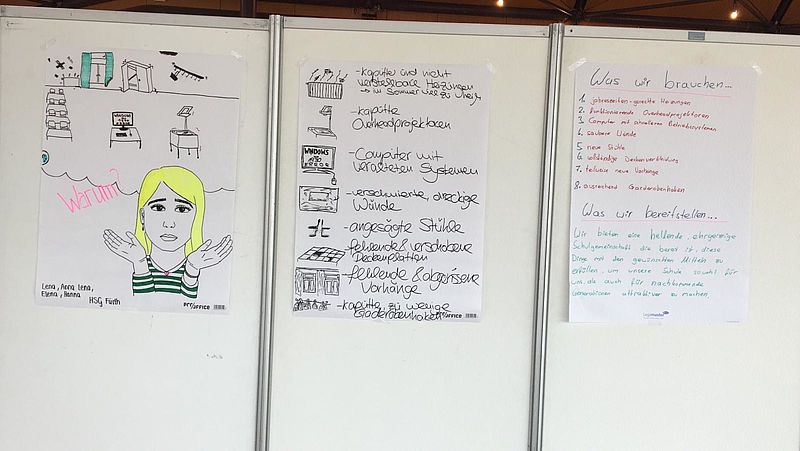 Warum?
Lena, Anna Lena,
Elena, Hanna
HSG Fürth
PRO/OFFICE
-kaputte und nicht
verstellbare Heizungen
→ im Sommer viel zu
-kaputte
Overheadprojektoren
WINDOWS
-Computer mit
veralteten Systemen
-verschmierte, dreckige
Wände
-angesägte Stühle
-fehlende & verschobene
Deckenplatten
-fehlende & abgerissene
Vorhänge
-kaputte, zu wenige
Garderobenhaken
PRO/OFFICE
Was wir brauchen...
1. jahreszeiten-gerechte Heizungen
2. funktionierende Overheadprojektoren
3. Computer mit schnelleren Betriebssystemen
4. saubere Wände
5. neue Stühle
6. vollständige Deckenverkleidung
7. teilweise neue Vorhänge
8. ausreichend Garderobenhaken
Was wir bereitstellen...
Wir bieten eine helfende, ehrgeizige
Schulgemeinschaft die bereit ist, diese
Dinge mit den gewünschten Mitteln zu
erfüllen, um unsere Schule sowohl für
uns, als auch für nachkommende
Generationen attraktiver zu machen.
legamaster